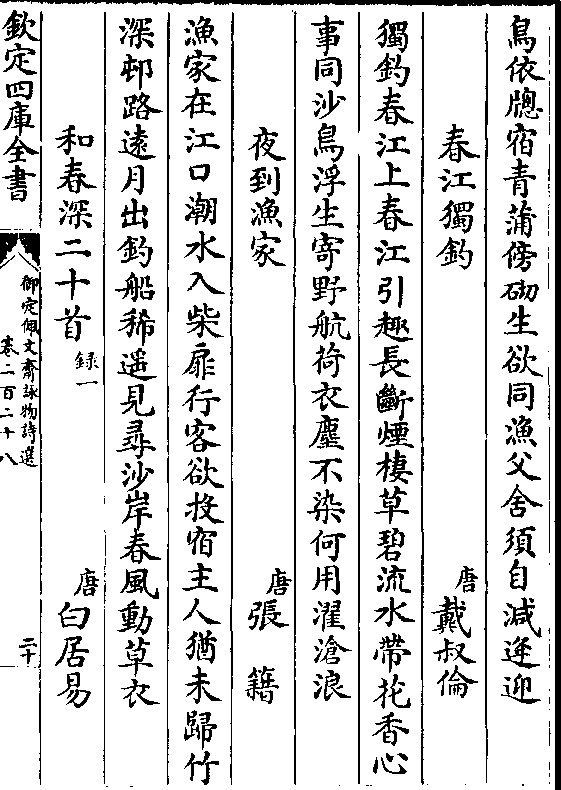 鳥依牕宿青蒲傍砌生欲同漁父舍須自減逢迎
春江獨釣 唐戴叔倫
獨釣春江上春江引趣長斷煙棲草碧流水帶花香心
事同沙鳥浮生寄野航荷衣塵不染何用濯滄浪
夜到漁家 唐張籍
漁家在江口潮水入柴扉行客欲投宿主人猶未歸竹
深邨路遠月出釣船稀遥見尋沙岸春風動草衣
和春深二十首 録一 唐白居易
欽定四庫全書
御定佩文齋詠物詩選
卷二百二十八
二十